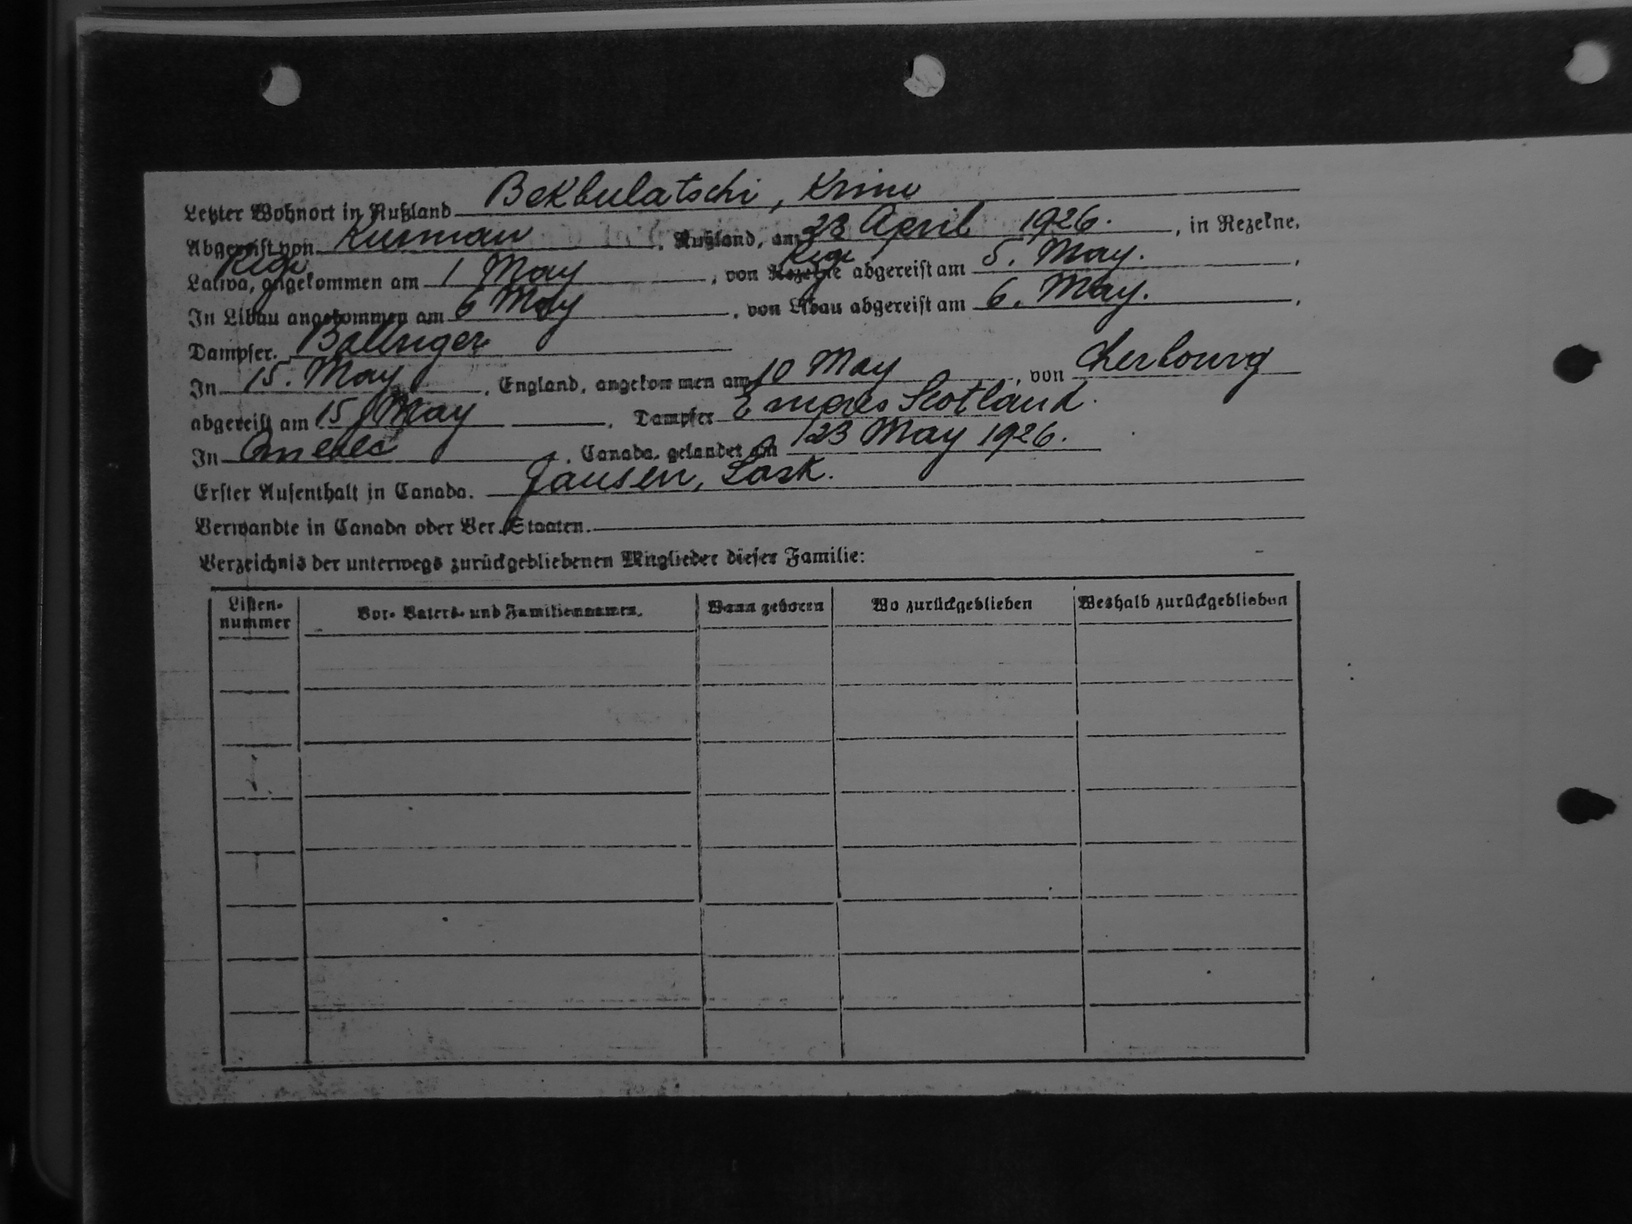 Letzter Wohnort in Rußland Bekbulatschi, Krim
Abgereist von Kurman, Rußland, am 23 April 1926., in Rezekne,
Riga Riga
Latwa, angekommen am 1 May, von Rezekne abgereist am 5. May.,
In Libau angekommen am 6 May, von Libau abgereist am 6. May.,
Dampfer. Baltriger
In 15. May, England, angekommen am 10 May, von Cherbourg
abgereist am 15 May, Dampfer Empres Scotland.
In Quebec, Canada, gelandet am 23 May 1926.
Erster Aufenthalt in Canada. Jansen, Sask.
Verwandte in Canada oder Ver. Staaten.
Verzeichnis der unterwegs zurückgebliebenen Mitglieder dieser Familie:
Listen-nummer Vor- Vaters- und Familiennamen. Wann geboren Wo zurückgeblieben Weshalb zurückgeblieben